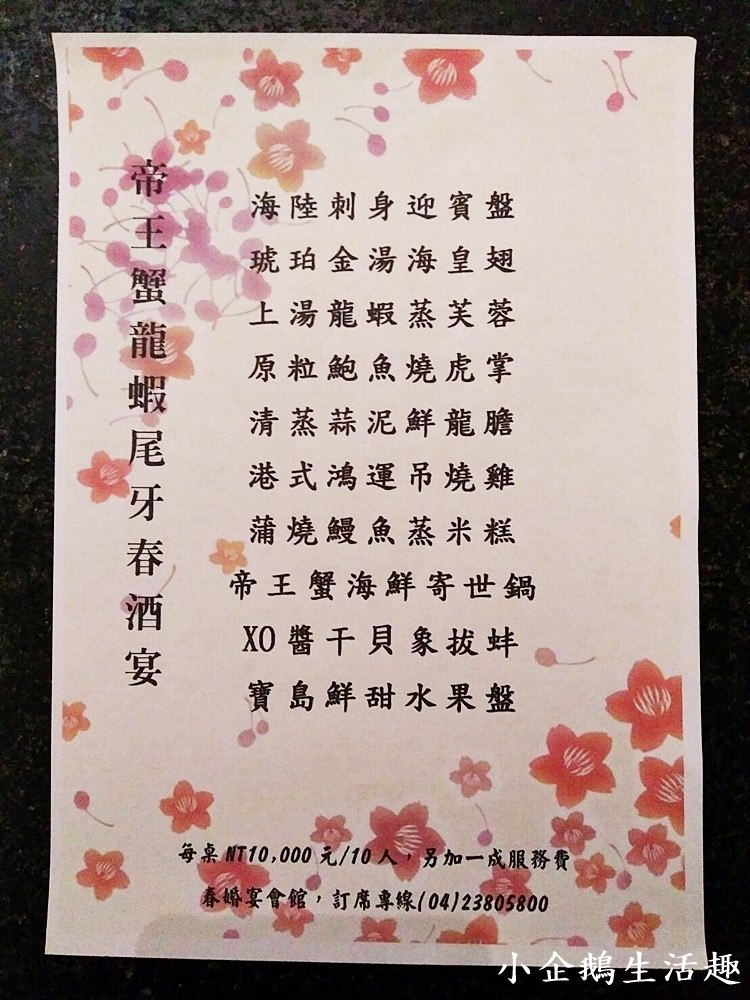 帝王蟹龍蝦尾牙春酒宴
海陸刺身迎賓盤
琥珀金湯海皇翅
上湯龍蝦蒸芙蓉
原粒鮑魚燒虎掌
清蒸蒜泥鮮龍膽
港式鴻運吊燒雞
蒲燒鰻魚蒸米糕
帝王蟹海鮮寄世鍋
XO醬干貝象拔蚌
寶島鮮甜水果盤
每桌NT10,000元/10人，另加一成服務費
春婚宴會館，訂席專線(04)23805800
小企鵝生活趣